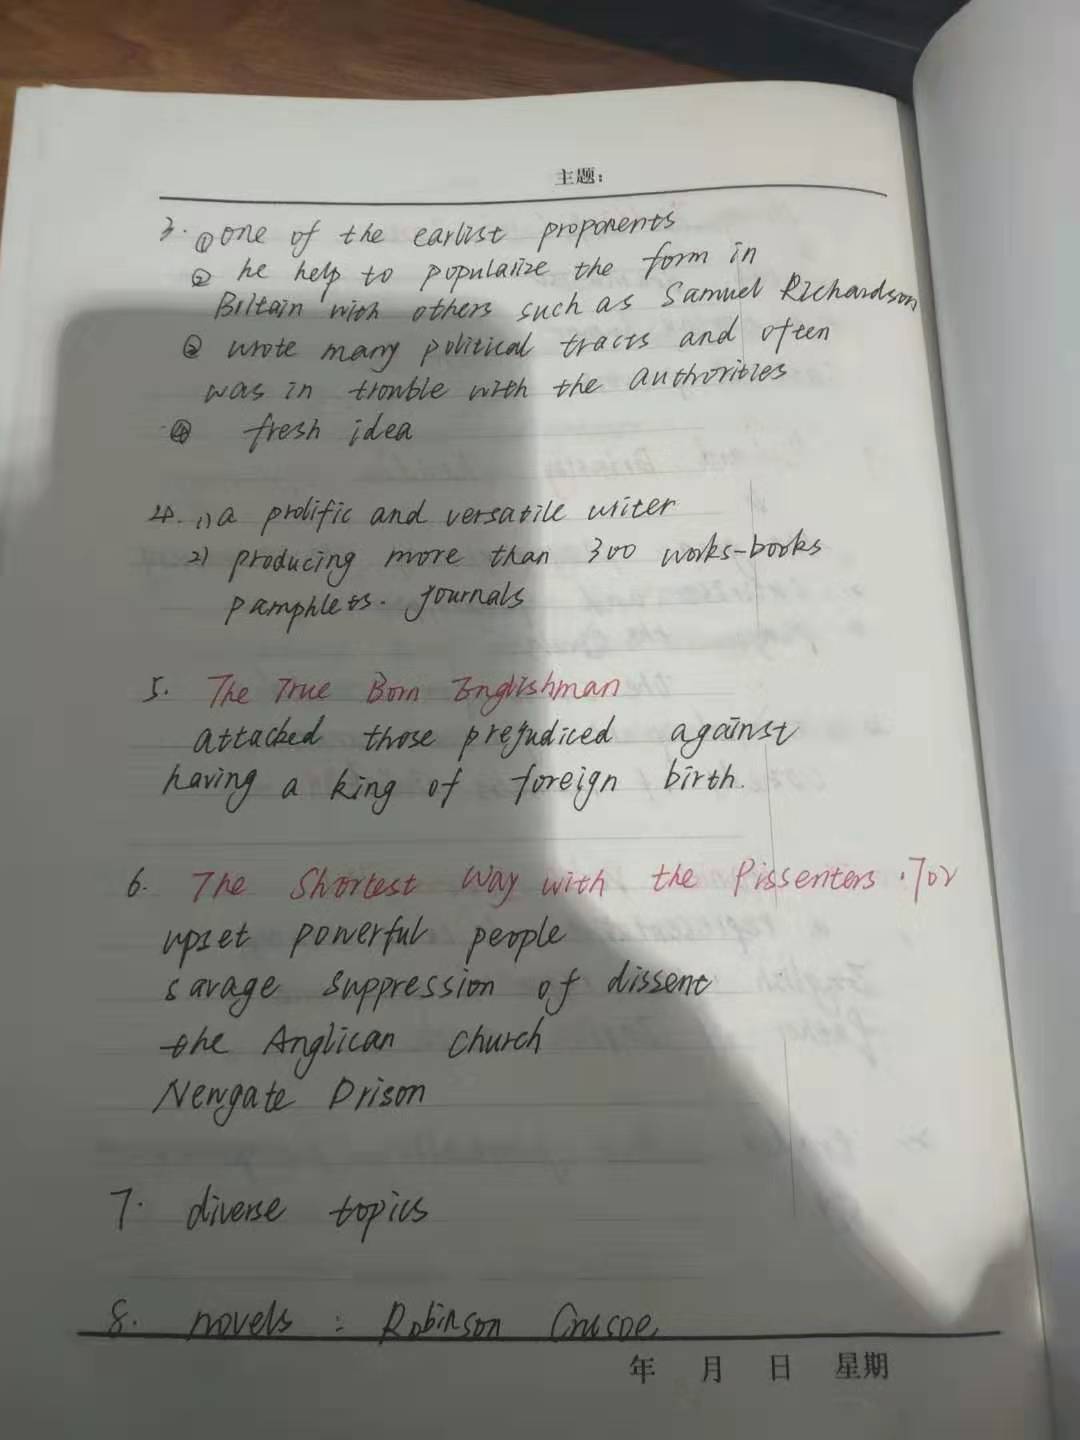 主题:
3. ① one of the earlist proponents
② he help to popularize the form in
Britain with others such as Samuel Richardson
③ wrote many political tracts and often
was in trouble with the authorities
④ fresh idea
4. 1) a prolific and versatile writer
2) producing more than 300 works-books
pamphlets. journals
5. The True Born Englishman
attacked those prejudiced against
having a king of foreign birth.
6. The Shortest Way with the Dissenters.
upset powerful people
savage suppression of dissent
the Anglican church
Newgate Prison
7. diverse topics
8. novels: Robinson Crusoe,
年 月 日 星期